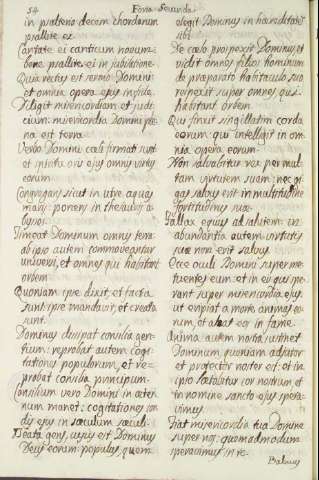 54
Feria Secunda
in psalterio decem chordarum
psallite ei
Cantate ei canticum novum:
bene psallite ei in jubilatione
Quia rectus est sermo Domini:
et omnia opera ejus in fide.
Diligit misericordiam et judi-
cium: misericordia Domini ple-
na est terra
Verbo Domini cœli firmati sunt
et spiritu oris ejus omnis virtus
eorum
Congregans sicut in utre aquas
maris: ponens in thesauris a-
byssos
Timeat Dominum omnis terra:
ab ipso autem commoveantur
universi, et omnes qui habitant
orbem
Quoniam ipse dixit, et facta
sunt: ipse mandavit, et creata
sunt.
Dominus dissipat consilia gen-
tium: reprobat autem cogi-
tationes populorum, et re-
probat consilia principum.
Consilium vero Domini in æter-
num manet: cogitationes cor-
dis ejus in sæculum sæculi.
Beata gens, cujus est Dominus
Deus eorum: populus, quem
elegit Dominus in hæreditatem
sibi.
De cœlo prospexit Dominus et
vidit omnes filios hominum
de præparato habitaculo suo
respexit super omnes qui
habitant orbem
Qui finxit singillatim corda
eorum: qui intelligit in om-
nia opera eorum
Non salvabitur rex per mul-
tam virtutem suam: nec gi-
gas salvus erit in multitudine
virtutis suæ
Fallax equus ad salutem: in
abundantia autem virtutis
suæ non erit salvus
Ecce oculi Domini super me-
tuentes eum: et in eis qui spe-
rant super misericordia ejus
ut eripiat a morte animas eo-
rum, et alat eos in fame
Anima autem nostra sustinet
Dominum, quoniam adjutor
et protector noster est: et in
ipso lætabitur cor nostrum et
in nomine sancto ejus spera-
vimus
Fiat misericordia tua Domine
super nos: quemadmodum
speravimus in te.